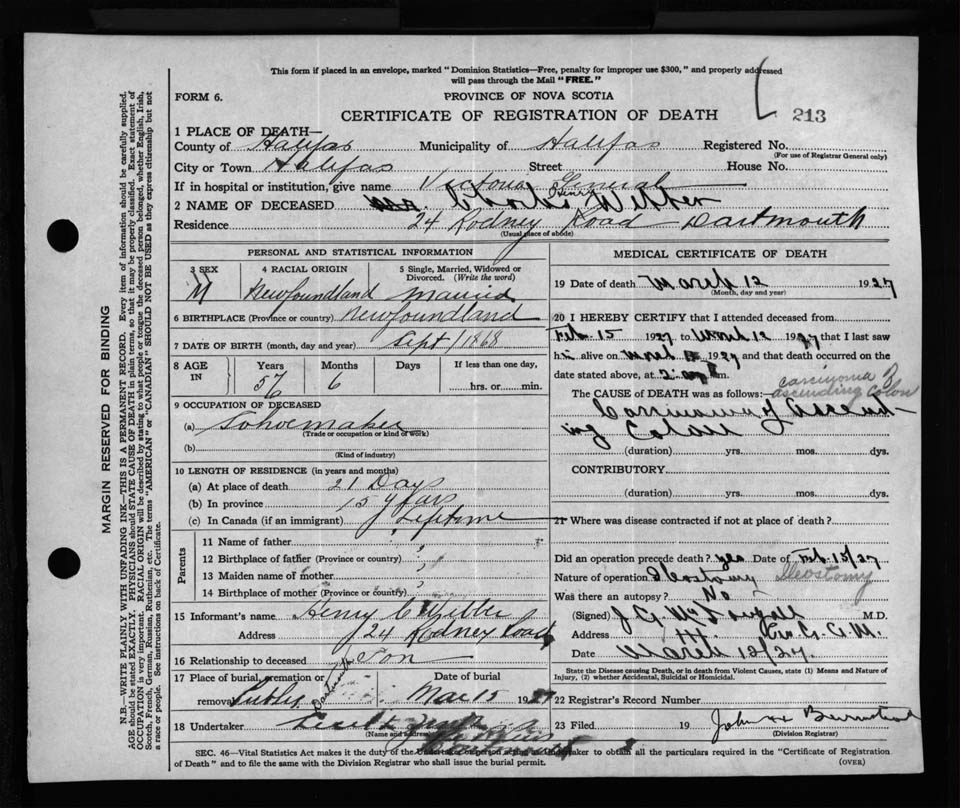 This form if placed in an envelope, marked "Dominion Statistics—Free, penalty for improper use $300," and properly addressed
will pass through the Mail "FREE."
FORM 6. PROVINCE OF NOVA SCOTIA
CERTIFICATE OF REGISTRATION OF DEATH 213
1 PLACE OF DEATH—
County of Halifax Municipality of Halifax Registered No.
(For use of Registrar General only)
City or Town Halifax Street House No.
If in hospital or institution, give name Victoria General
2 NAME OF DECEASED Charles Webber
Residence 24 Rodney Road Dartmouth
(Usual place of abode)
PERSONAL AND STATISTICAL INFORMATION
3 SEX 4 RACIAL ORIGIN 5 Single, Married, Widowed or
Divorced. (Write the word)
M Newfoundland Married
6 BIRTHPLACE (Province or country) Newfoundland
7 DATE OF BIRTH (month, day and year) Sept / 1868
8 AGE IN Years Months Days If less than one day,
6 hrs. or min.
9 OCCUPATION OF DECEASED
(a) Shoemaker
(Trade or occupation or kind of work)
(b)
(Kind of industry)
10 LENGTH OF RESIDENCE (in years and months)
(a) At place of death 21 Days
(b) In province 15 years
(c) In Canada (if an immigrant) Lifetime
Parents
11 Name of father
12 Birthplace of father (Province or country)
13 Maiden name of mother
14 Birthplace of mother (Province or country)
15 Informant's name Henry C Webber
Address 24 Rodney Road
16 Relationship to deceased Son
17 Place of burial, cremation or Date of burial
removal Mar 15 1927
18 Undertaker
(Name and address)
MEDICAL CERTIFICATE OF DEATH
19 Date of death March 12 1927
(Month, day and year)
20 I HEREBY CERTIFY that I attended deceased from
Feb. 15 1927 to March 12 1927 that I last saw
him alive on March 1927 and that death occurred on the
date stated above, at 2 m.
The CAUSE OF DEATH was as follows: carcinoma of
ascending colon
Carcinoma of Ascend-
ing Colon
(duration) yrs. mos. dys.
CONTRIBUTORY
(duration) yrs. mos. dys.
21 Where was disease contracted if not at place of death?
Did an operation precede death? yes Date of Feb. 15/27
Nature of operation Ileostomy Ileostomy
Was there an autopsy? No
(Signed) J G M.D.
Address
Date March 12/27.
State the Disease causing Death, or in death from Violent Causes, state (1) Means and Nature of
Injury, (2) whether Accidental, Suicidal or Homicidal.
22 Registrar's Record Number
23 Filed 19 John
(Division Registrar)
SEC. 46—Vital Statistics Act makes it the duty of the Undertaker or person acting as Undertaker to obtain all the particulars required in the "Certificate of Registration
of Death" and to file the same with the Division Registrar who shall issue the burial permit. (OVER)
MARGIN RESERVED FOR BINDING
N.B.—WRITE PLAINLY WITH UNFADING INK—THIS IS A PERMANENT RECORD. Every item of information should be carefully supplied.
AGE should be stated EXACTLY. PHYSICIANS should STATE CAUSE OF DEATH in plain terms, so that it may be properly classified. Exact statement of
OCCUPATION is very important. RACIAL ORIGIN will be described by stating to what people or tongue the deceased person belonged, whether English, Irish,
Scotch, French, German, Russian, Ruthenian, etc. The terms "AMERICAN" or "CANADIAN" SHOULD NOT BE USED as they express citizenship but not
a race or people. See instructions on back of Certificate.